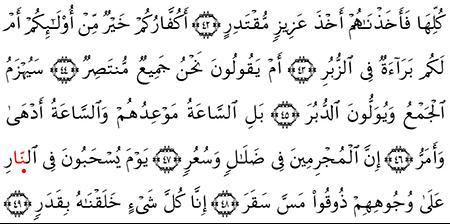 كُلِّهَا فَأَخَذْنَٰهُمْ أَخْذَ عَزِيزٍ مُّقْتَدِرٍ ﴿٤٢﴾ أَكُفَّارُكُمْ خَيْرٌ مِّنْ أُو۟لَٰٓئِكُمْ أَمْ
لَكُم بَرَآءَةٌ فِى ٱلزُّبُرِ ﴿٤٣﴾ أَمْ يَقُولُونَ نَحْنُ جَمِيعٌ مُّنتَصِرٌ ﴿٤٤﴾ سَيُهْزَمُ
ٱلْجَمْعُ وَيُوَلُّونَ ٱلدُّبُرَ ﴿٤٥﴾ بَلِ ٱلسَّاعَةُ مَوْعِدُهُمْ وَٱلسَّاعَةُ أَدْهَىٰ
وَأَمَرُّ ﴿٤٦﴾ إِنَّ ٱلْمُجْرِمِينَ فِى ضَلَٰلٍ وَسُعُرٍ ﴿٤٧﴾ يَوْمَ يُسْحَبُونَ فِى ٱلنَّارِ
عَلَىٰ وُجُوهِهِمْ ذُوقُوا۟ مَسَّ سَقَرَ ﴿٤٨﴾ إِنَّا كُلَّ شَىْءٍ خَلَقْنَٰهُ بِقَدَرٍ ﴿٤٩﴾